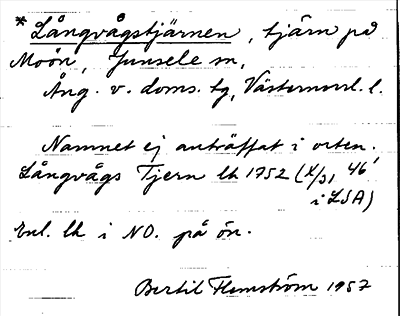 * Långvågstjärnen, tjärn på
Moön, Junsele sn,
Ång. v. doms. tg, Västernorrl. l.
Namnet ej anträffat i orten.
Långvågs Tjern lk 1752 (X/3, 46'
i LSA)
Enl. lk i NO. på ön.
Bertil Flemström 1957